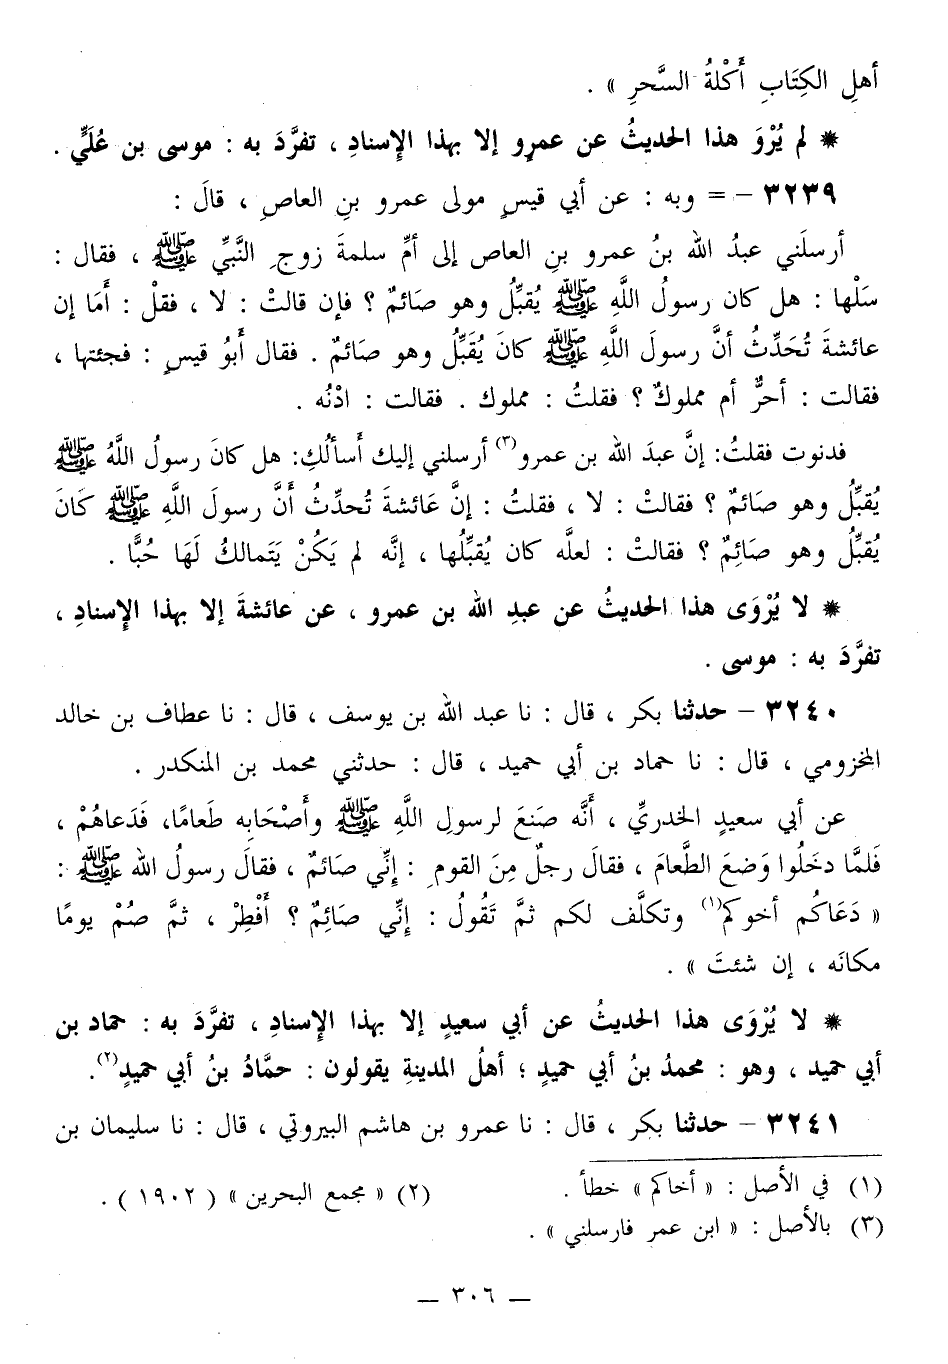 أهلِ الكِتَابِ أَكْلةُ السَّحرِ » .
* لم يُرْوَ هذا الحديثُ عن عمرٍو إلا بهذا الإسنادِ ، تفرَّدَ به : موسى بن عُلَيٍّ .
٣٢٣٩ - = وبه : عن أبي قيسٍ مولى عمرو بنِ العاصِ ، قالَ :
أرسلَني عبدُ الله بنُ عمرو بنِ العاص إلى أمِّ سلمةَ زوجِ النَّبيِّ ﷺ ، فقال :
سَلْها : هل كان رسولُ اللَّهِ ﷺ يُقبِّلُ وهو صَائمٌ ؟ فإن قالتْ : لا ، فقلْ : أمَا إن
عائشةَ تُحَدِّثُ أنَّ رسولَ اللَّهِ ﷺ كانَ يُقَبِّلُ وهو صَائمٌ . فقال أَبُو قيسٍ : فجئتها ،
فقالت : أحرٌّ أم مملوكٌ ؟ فقلتُ : مملوك . فقالت : ادْنُه .
فدنوت فقلتُ: إنَّ عبدَ الله بن عمرو(٣) أرسلني إليك أَسألُكِ: هل كانَ رسولُ اللَّهُ ﷺ
يُقبِّلُ وهو صَائمٌ ؟ فقالتْ : لا ، فقلتُ : إنَّ عَائشةَ تُحدِّثُ أَنَّ رسولَ اللَّهِ ﷺ كَانَ
يُقبِّلُ وهو صَائِمٌ ؟ فقالتْ : لعله كان يُقبِّلُها ، إنَّه لم يَكُنْ يَتَمالكُ لَهَا حُبًّا .
* لا يُرْوَى هذا الحديثُ عن عبدِ الله بن عمرو ، عن عائشةَ إلا بهذا الإسنادِ ،
تفرَّدَ به : موسى .
٣٢٤٠ - حدثنا بكر ، قال : نا عبد الله بن يوسف ، قال : نا عطاف بن خالد
المخزومي ، قال : نا حماد بن أبي حميد ، قال : حدثني محمد بن المنكدر .
عن أبي سعيدٍ الخدريِّ ، أَنَّه صَنَعَ لرسول اللَّهِ ﷺ وأَصْحَابه طَعامًا، فَدَعاهُمْ ،
فَلمَّا دخَلُوا وَضعَ الطَّعامَ ، فقالَ رجلٌ مِنَ القومِ : إِنِّي صَائمٌ ، فقالَ رسولُ الله ﷺ :
« دَعَاكُم أخوكم(١) وتكلَّف لكم ثمَّ تَقُولُ : إِنِّي صَائِمٌ ؟ أَفْطِرْ ، ثمَّ صُمْ يومًا
مكانَه ، إن شئتَ » .
* لا يُرْوَى هذا الحديثُ عن أبي سعيدٍ إلا بهذا الإسنادِ ، تفرَّدَ به : حماد بن
أبي حميد ، وهو : محمدُ بنُ أبي حميدٍ ؛ أهلُ المدينةِ يقولون : حمَّادُ بنُ أبي حميدٍ(٢).
٣٢٤١ - حدثنا بكر ، قال : نا عمرو بن هاشم البيروتي ، قال : نا سليمان بن
(١) في الأصل : « أخاكم » خطأ . (٢) « مجمع البحرين » ( ١٩٠٢ ) .
(٣) بالأصل : « ابن عمر فارسلني » .
— ٣٠٦ —